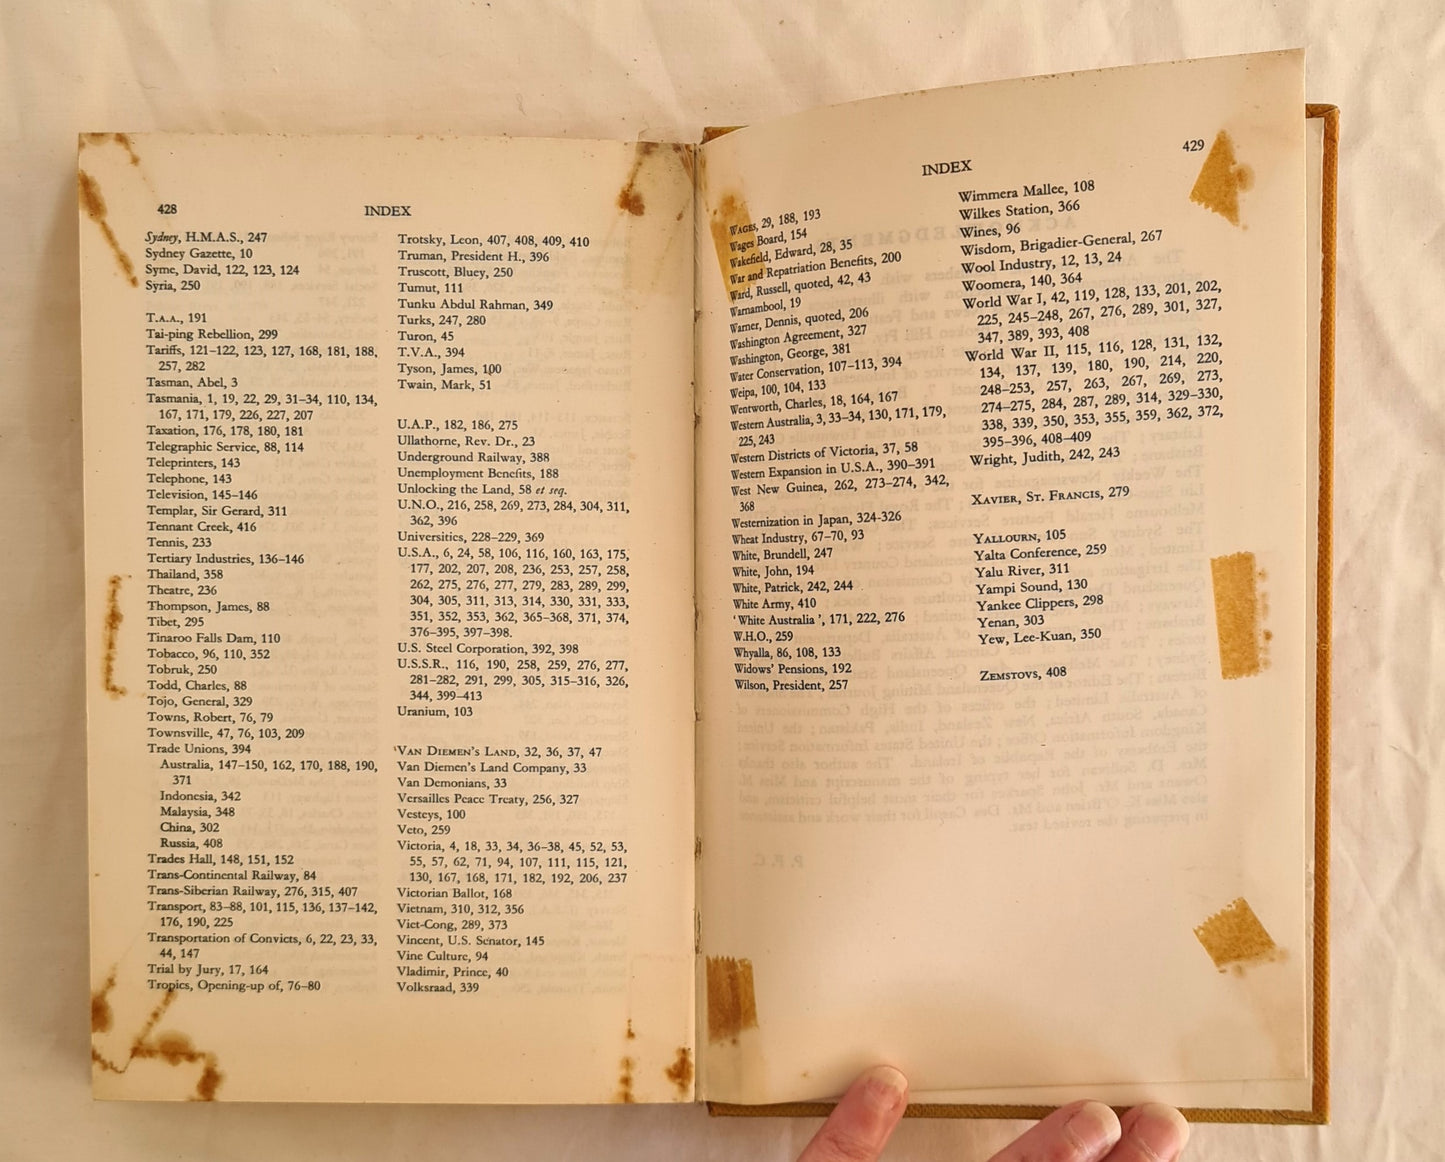 428
INDEX
Sydney, H.M.A.S., 247
Sydney Gazette, 10
Syme, David, 122, 123, 124
Syria, 250
T.A.A., 191
Tai-ping Rebellion, 299
Tariffs, 121–122, 123, 127, 168, 181, 188,
257, 282
Tasman, Abel, 3
Tasmania, 1, 19, 22, 29, 31–34, 110, 134,
167, 171, 179, 226, 227, 207
Taxation, 176, 178, 180, 181
Telegraphic Service, 88, 114
Teleprinters, 143
Telephone, 143
Television, 145–146
Templar, Sir Gerard, 311
Tennant Creek, 416
Tennis, 233
Tertiary Industries, 136–146
Thailand, 358
Theatre, 236
Thompson, James, 88
Tibet, 295
Tinaroo Falls Dam, 110
Tobacco, 96, 110, 352
Tobruk, 250
Todd, Charles, 88
Tojo, General, 329
Towns, Robert, 76, 79
Townsville, 47, 76, 103, 209
Trade Unions, 394
Australia, 147–150, 162, 170, 188, 190,
371
Indonesia, 342
Malaysia, 348
China, 302
Russia, 408
Trades Hall, 148, 151, 152
Trans-Continental Railway, 84
Trans-Siberian Railway, 276, 315, 407
Transport, 83–88, 101, 115, 136, 137–142,
176, 190, 225
Transportation of Convicts, 6, 22, 23, 33,
44, 147
Trial by Jury, 17, 164
Tropics, Opening-up of, 76–80
Trotsky, Leon, 407, 408, 409, 410
Truman, President H., 396
Truscott, Bluey, 250
Tumut, 111
Tunku Abdul Rahman, 349
Turks, 247, 280
Turon, 45
T.V.A., 394
Tyson, James, 100
Twain, Mark, 51
U.A.P., 182, 186, 275
Ullathorne, Rev. Dr., 23
Underground Railway, 388
Unemployment Benefits, 188
Unlocking the Land, 58 et seq.
U.N.O., 216, 258, 269, 273, 284, 304, 311,
362, 396
Universities, 228–229, 369
U.S.A., 6, 24, 58, 106, 116, 160, 163, 175,
177, 202, 207, 208, 236, 253, 257, 258,
262, 275, 276, 277, 279, 283, 289, 299,
304, 305, 311, 313, 314, 330, 331, 333,
351, 352, 353, 362, 365–368, 371, 374,
376–395, 397–398.
U.S. Steel Corporation, 392, 398
U.S.S.R., 116, 190, 258, 259, 276, 277,
281–282, 291, 299, 305, 315–316, 326,
344, 399–413
Uranium, 103
VAN DIEMEN'S LAND, 32, 36, 37, 47
Van Diemen's Land Company, 33
Van Demonians, 33
Versailles Peace Treaty, 256, 327
Vesteys, 100
Veto, 259
Victoria, 4, 18, 33, 34, 36–38, 45, 52, 53,
55, 57, 62, 71, 94, 107, 111, 115, 121,
130, 167, 168, 171, 182, 192, 206, 237
Victorian Ballot, 168
Vietnam, 310, 312, 356
Viet-Cong, 289, 373
Vincent, U.S. Senator, 145
Vine Culture, 94
Vladimir, Prince, 40
Volksraad, 339
INDEX
429
WAGES, 29, 188, 193
Wages Board, 154
Wakefield, Edward, 28, 35
War and Repatriation Benefits, 200
Ward, Russell, quoted, 42, 43
Warnambool, 19
Warner, Dennis, quoted, 206
Washington Agreement, 327
Washington, George, 381
Water Conservation, 107–113, 394
Weipa, 100, 104, 133
Wentworth, Charles, 18, 164, 167
Western Australia, 3, 33–34, 130, 171, 179,
225, 243
Western Districts of Victoria, 37, 58
Western Expansion in U.S.A., 390–391
West New Guinea, 262, 273–274, 342,
368
Westernization in Japan, 324-326
Wheat Industry, 67–70, 93
White, Brundell, 247
White, John, 194
White, Patrick, 242, 244
White Army, 410
'White Australia', 171, 222, 276
W.H.O., 259
Whyalla, 86, 108, 133
Widows' Pensions, 192
Wilson, President, 257
Wimmera Mallee, 108
Wilkes Station, 366
Wines, 96
Wisdom, Brigadier-General, 267
Wool Industry, 12, 13, 24
Woomera, 140, 364
World War I, 42, 119, 128, 133, 201, 202,
225, 245–248, 267, 276, 289, 301, 327,
347, 389, 393, 408
World War II, 115, 116, 128, 131, 132,
134, 137, 139, 180, 190, 214, 220,
248–253, 257, 263, 267, 269, 273,
274–275, 284, 287, 289, 314, 329–330,
338, 339, 350, 353, 355, 359, 362, 372,
395–396, 408–409
Wright, Judith, 242, 243
XAVIER, ST. FRANCIS, 279
YALLOURN, 105
Yalta Conference, 259
Yalu River, 311
Yampi Sound, 130
Yankee Clippers, 298
Yenan, 303
Yew, Lee-Kuan, 350
ZEMSTOVS, 408